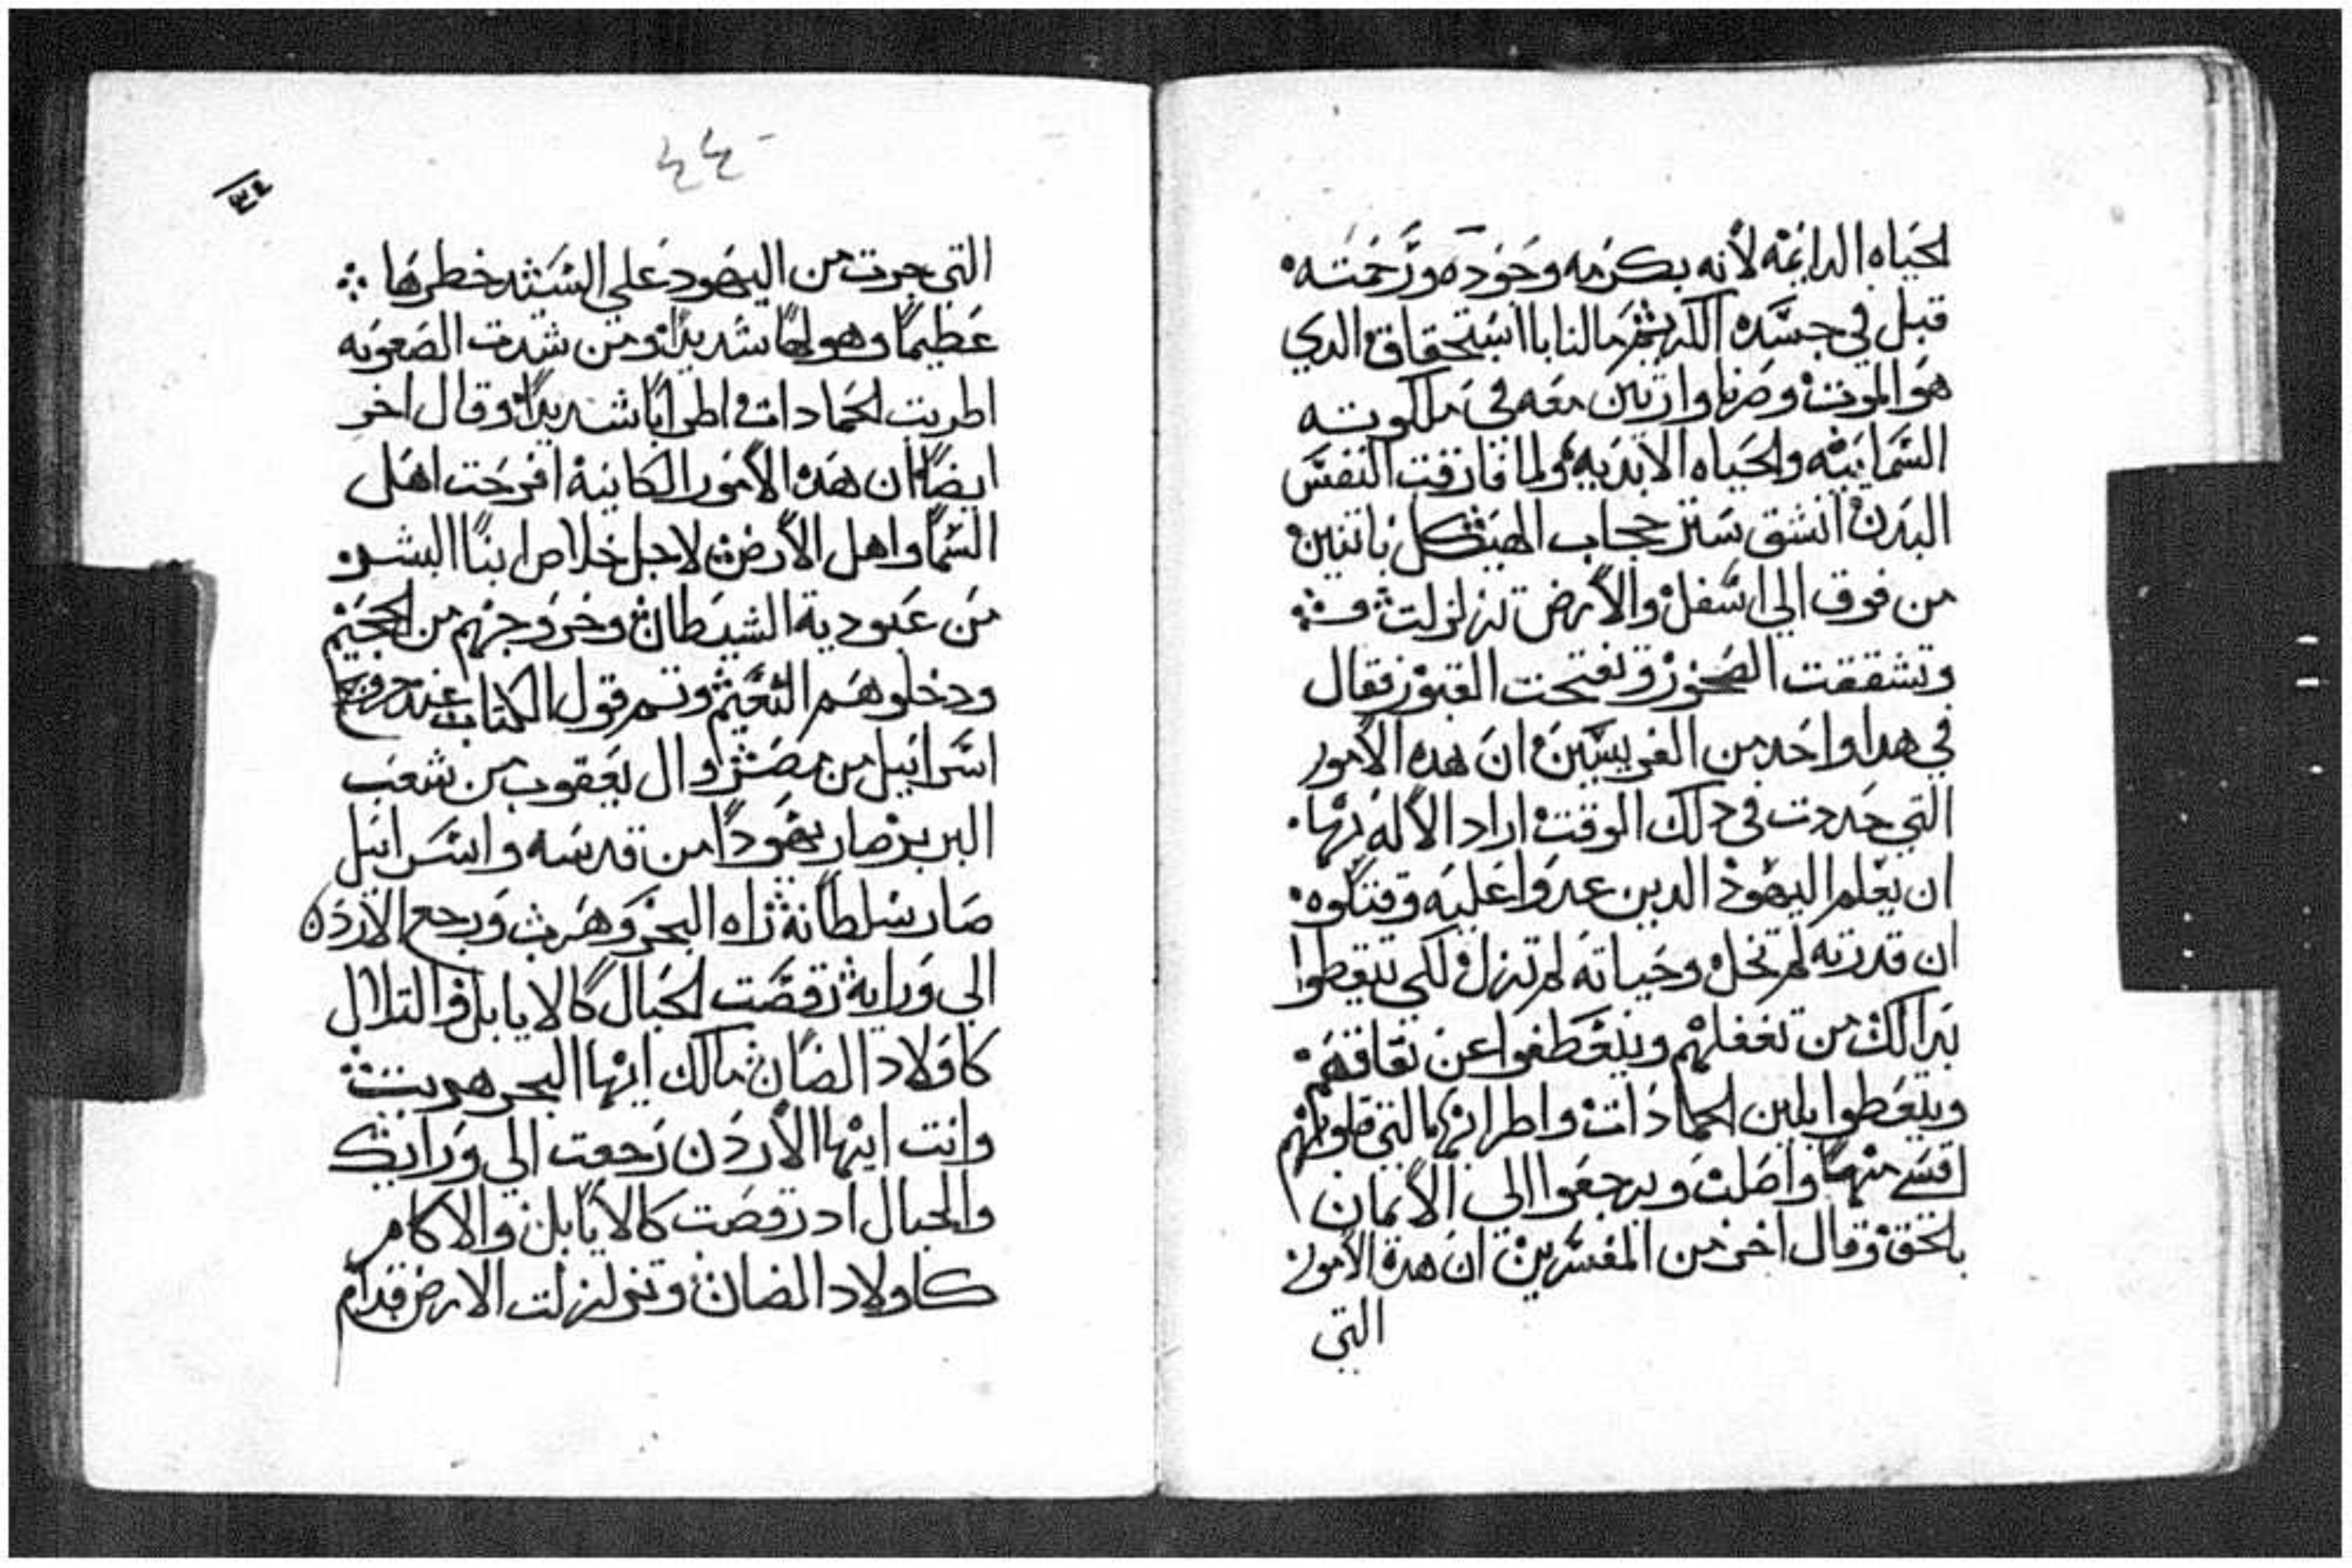 الحياه الدايمه لانه بكرمه وجوده ورحمته
قبل في جسده الدي مالنا باستحقاق الدي
هو الموت وصرنا وارتين معه في ملكوته
السمايية والحياه الابديه ولما فارقت النفس
البدن انشق ستر حجاب الهيكل باتنين
من فوق الي اسفل والارض تزلزلت
وتشققت الصخور وتفتحت القبور فقال
في هدا واحد من الفريسيين ان هده الامور
التي حددت في دلك الوقت اراد الاله بها
ان يعلم اليهود الدين عدوا عليه وقتلوه
ان قدرته لم تخل وحياته لم تزل لكي تتيقظوا
بدالك من تغفلهم ويتعطفوا عن نفاقهم
ويتعظوا بلين الجمادات واطرابها التي قلوبهم
اقسي منها واصلت ويرجعوا الي الايمان
بالحق وقال اخر من المفسرين ان هده الامور
التي
٤٤
التي جرت من اليهود علي السيد خطرها
عظيما وهولها شديدا ومن شدت الصعوبه
اطربت الجمادات اطرابا شديدا وقال اخر
ايضا ان هده الامور الكاينة افرحت اهل
السما واهل الارض لاجل خلاص ابنا البشر
من عبودية الشيطان وخروجهم من الجحيم
ودخلوهم النعيم وتم قول الكتاب عند خروج
اسراييل من مصر وال يعقوب من شعب
البربر صار يهودا من قدسه واسراييل
صار سلطانه راه البحر وهرب ورجع الاردن
الي ورايه رقصت الجبال كالايايل والتلال
كاولاد الضان مالك ايها البحر هربت
وانت ايها الاردن رجعت الي ورايك
والجبال اد رقصت كالايايل والاكام
كاولاد الضان وتزلزلت الارض قدام